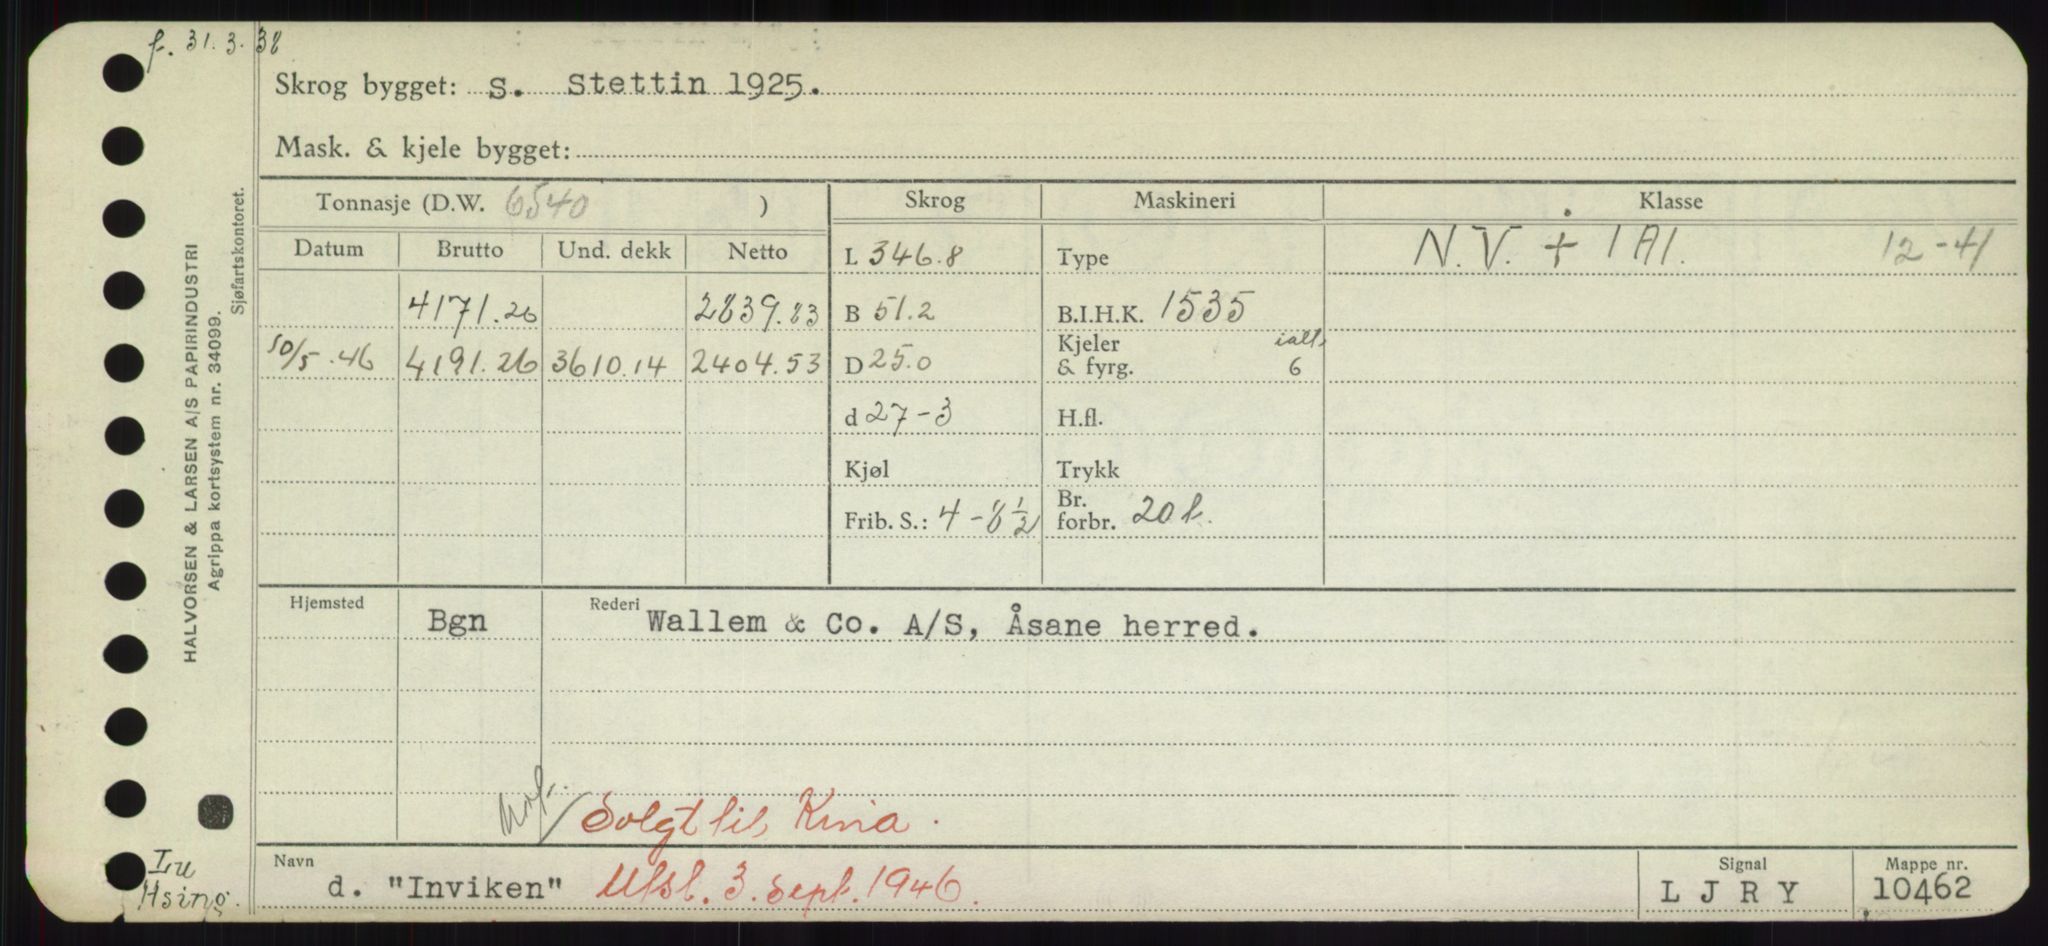 f. 31.3.38
Skrog bygget: s. Stettin 1925.
Mask. & kjele bygget:
Tonnasje (D.W. 6540 )
Skrog
Maskineri
Klasse
Datum Brutto Und. dekk Netto
L 346.8
Type
N.V. + 1A1. 12-41
4171.26 2839.83
B 51.2
B.I.H.K. 1535
10/5.46 4191.26 3610.14 2404.53
D 25.0
Kjeler ialt
& fyrg. 6
d 27-3
H.fl.
Kjøl
Trykk
Frib. S.: 4-8½
Br.
forbr. 20 t.
Hjemsted Bgn
Rederi Wallem & Co. A/S, Åsane herred.
Solgt til Kina.
Navn d. "Inviken" Utsl. 3. Sept. 1946.
Signal
L J R Y
Mappe nr.
10462
Lu
Hsing.
HALVORSEN & LARSEN A/S PAPIRINDUSTRI
Agrippa kortsystem nr. 34099.
Sjøfartskontoret.